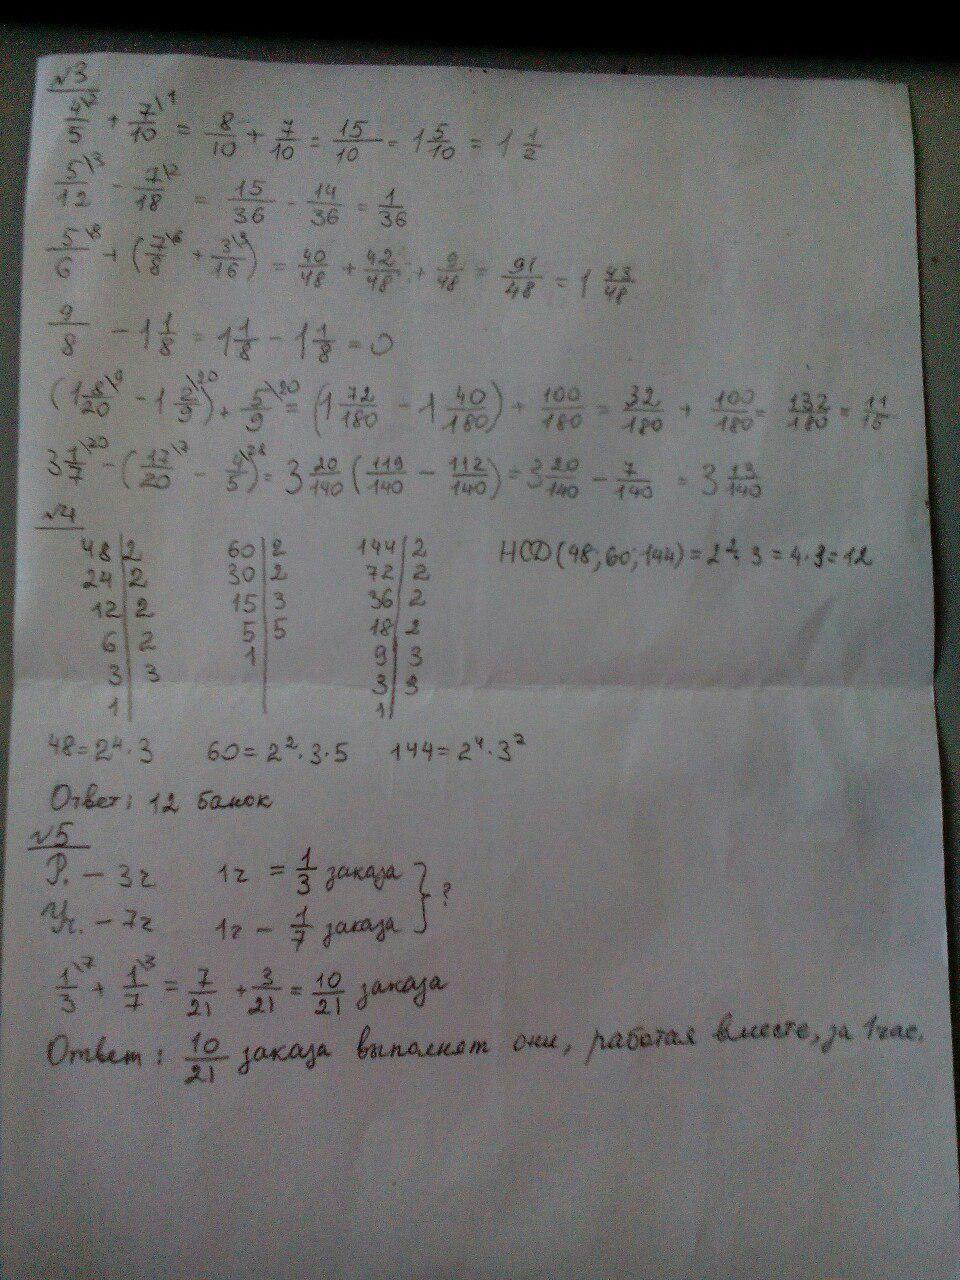 №3
4\2/5 + 7\1/10 = 8/10 + 7/10 = 15/10 = 1 5/10 = 1 1/2
5\3/12 - 7\2/18 = 15/36 - 14/36 = 1/36
5\8/6 + (7\6/8 + 3\3/16) = 40/48 + 42/48 + 9/48 = 91/48 = 1 43/48
9/8 - 1 1/8 = 1 1/8 - 1 1/8 = 0
(1 8\9/20 - 1 2\20/9) + 5\20/9 = (1 72/180 - 1 40/180) + 100/180 = 32/180 + 100/180 = 132/180 = 11/15
3 1\20/7 - (17\7/20 - 4\28/5) = 3 20/140 (119/140 - 112/140) = 3 20/140 - 7/140 = 3 13/140
№4
48|2 60|2 144|2 НСD (48; 60; 144) = 2² · 3 = 4 · 3 = 12
24|2 30|2 72|2
12|2 15|3 36|2
6|2 5|5 18|2
3|3 1| 9|3
1| 3|3
1|
48 = 2⁴ · 3 60 = 2² · 3 · 5 144 = 2⁴ · 3²
Ответ: 12 банок
№5
Р. - 3ч 1ч = 1/3 заказа } ?
Уч. - 7ч 1ч - 1/7 заказа
1\7/3 + 1\3/7 = 7/21 + 3/21 = 10/21 заказа
Ответ: 10/21 заказа выполнят они, работая вместе, за 1 час.